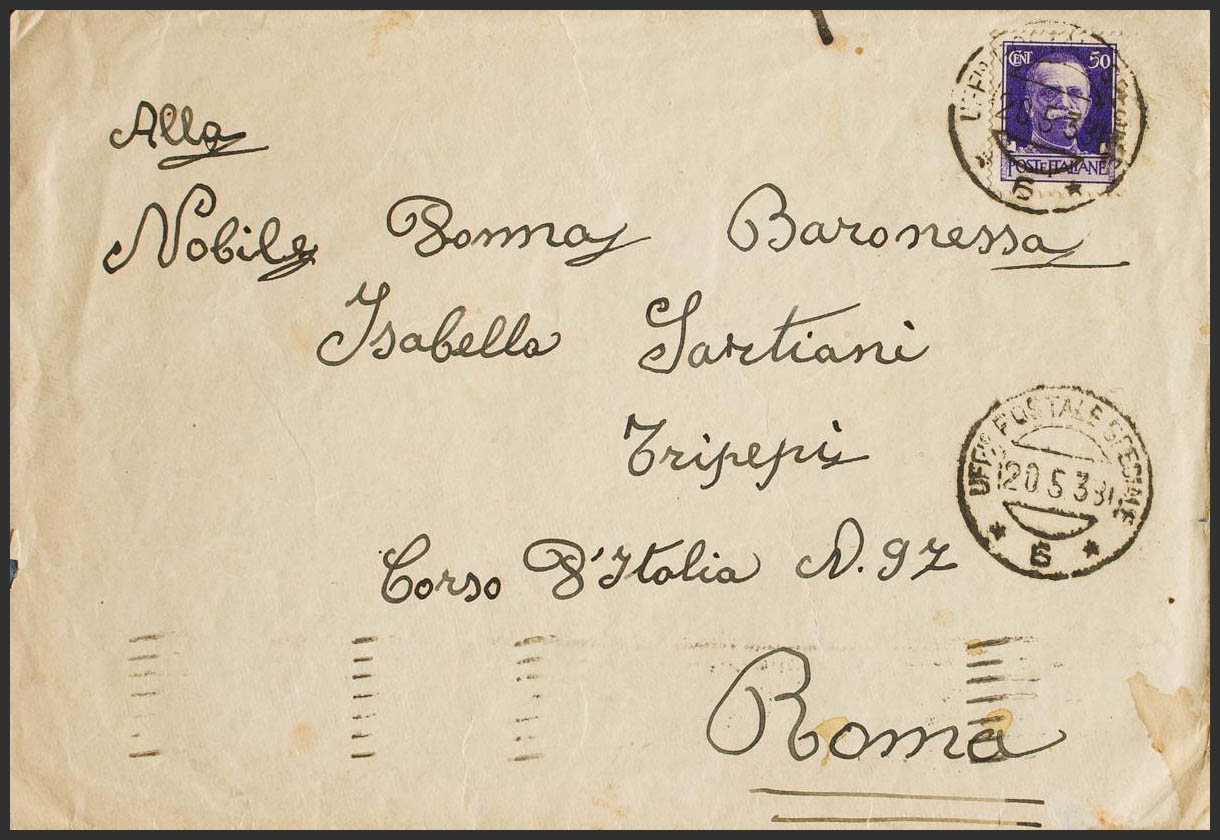 CENT 50
POSTE ITALIANE
20 5 3
6
Alla
Nobile Donna Baronessa
Isabella Sartiani
Tripepi
Corso D'Italia N. 97
Roma
UFF° POSTALE SPECIALE
20 5 3
6